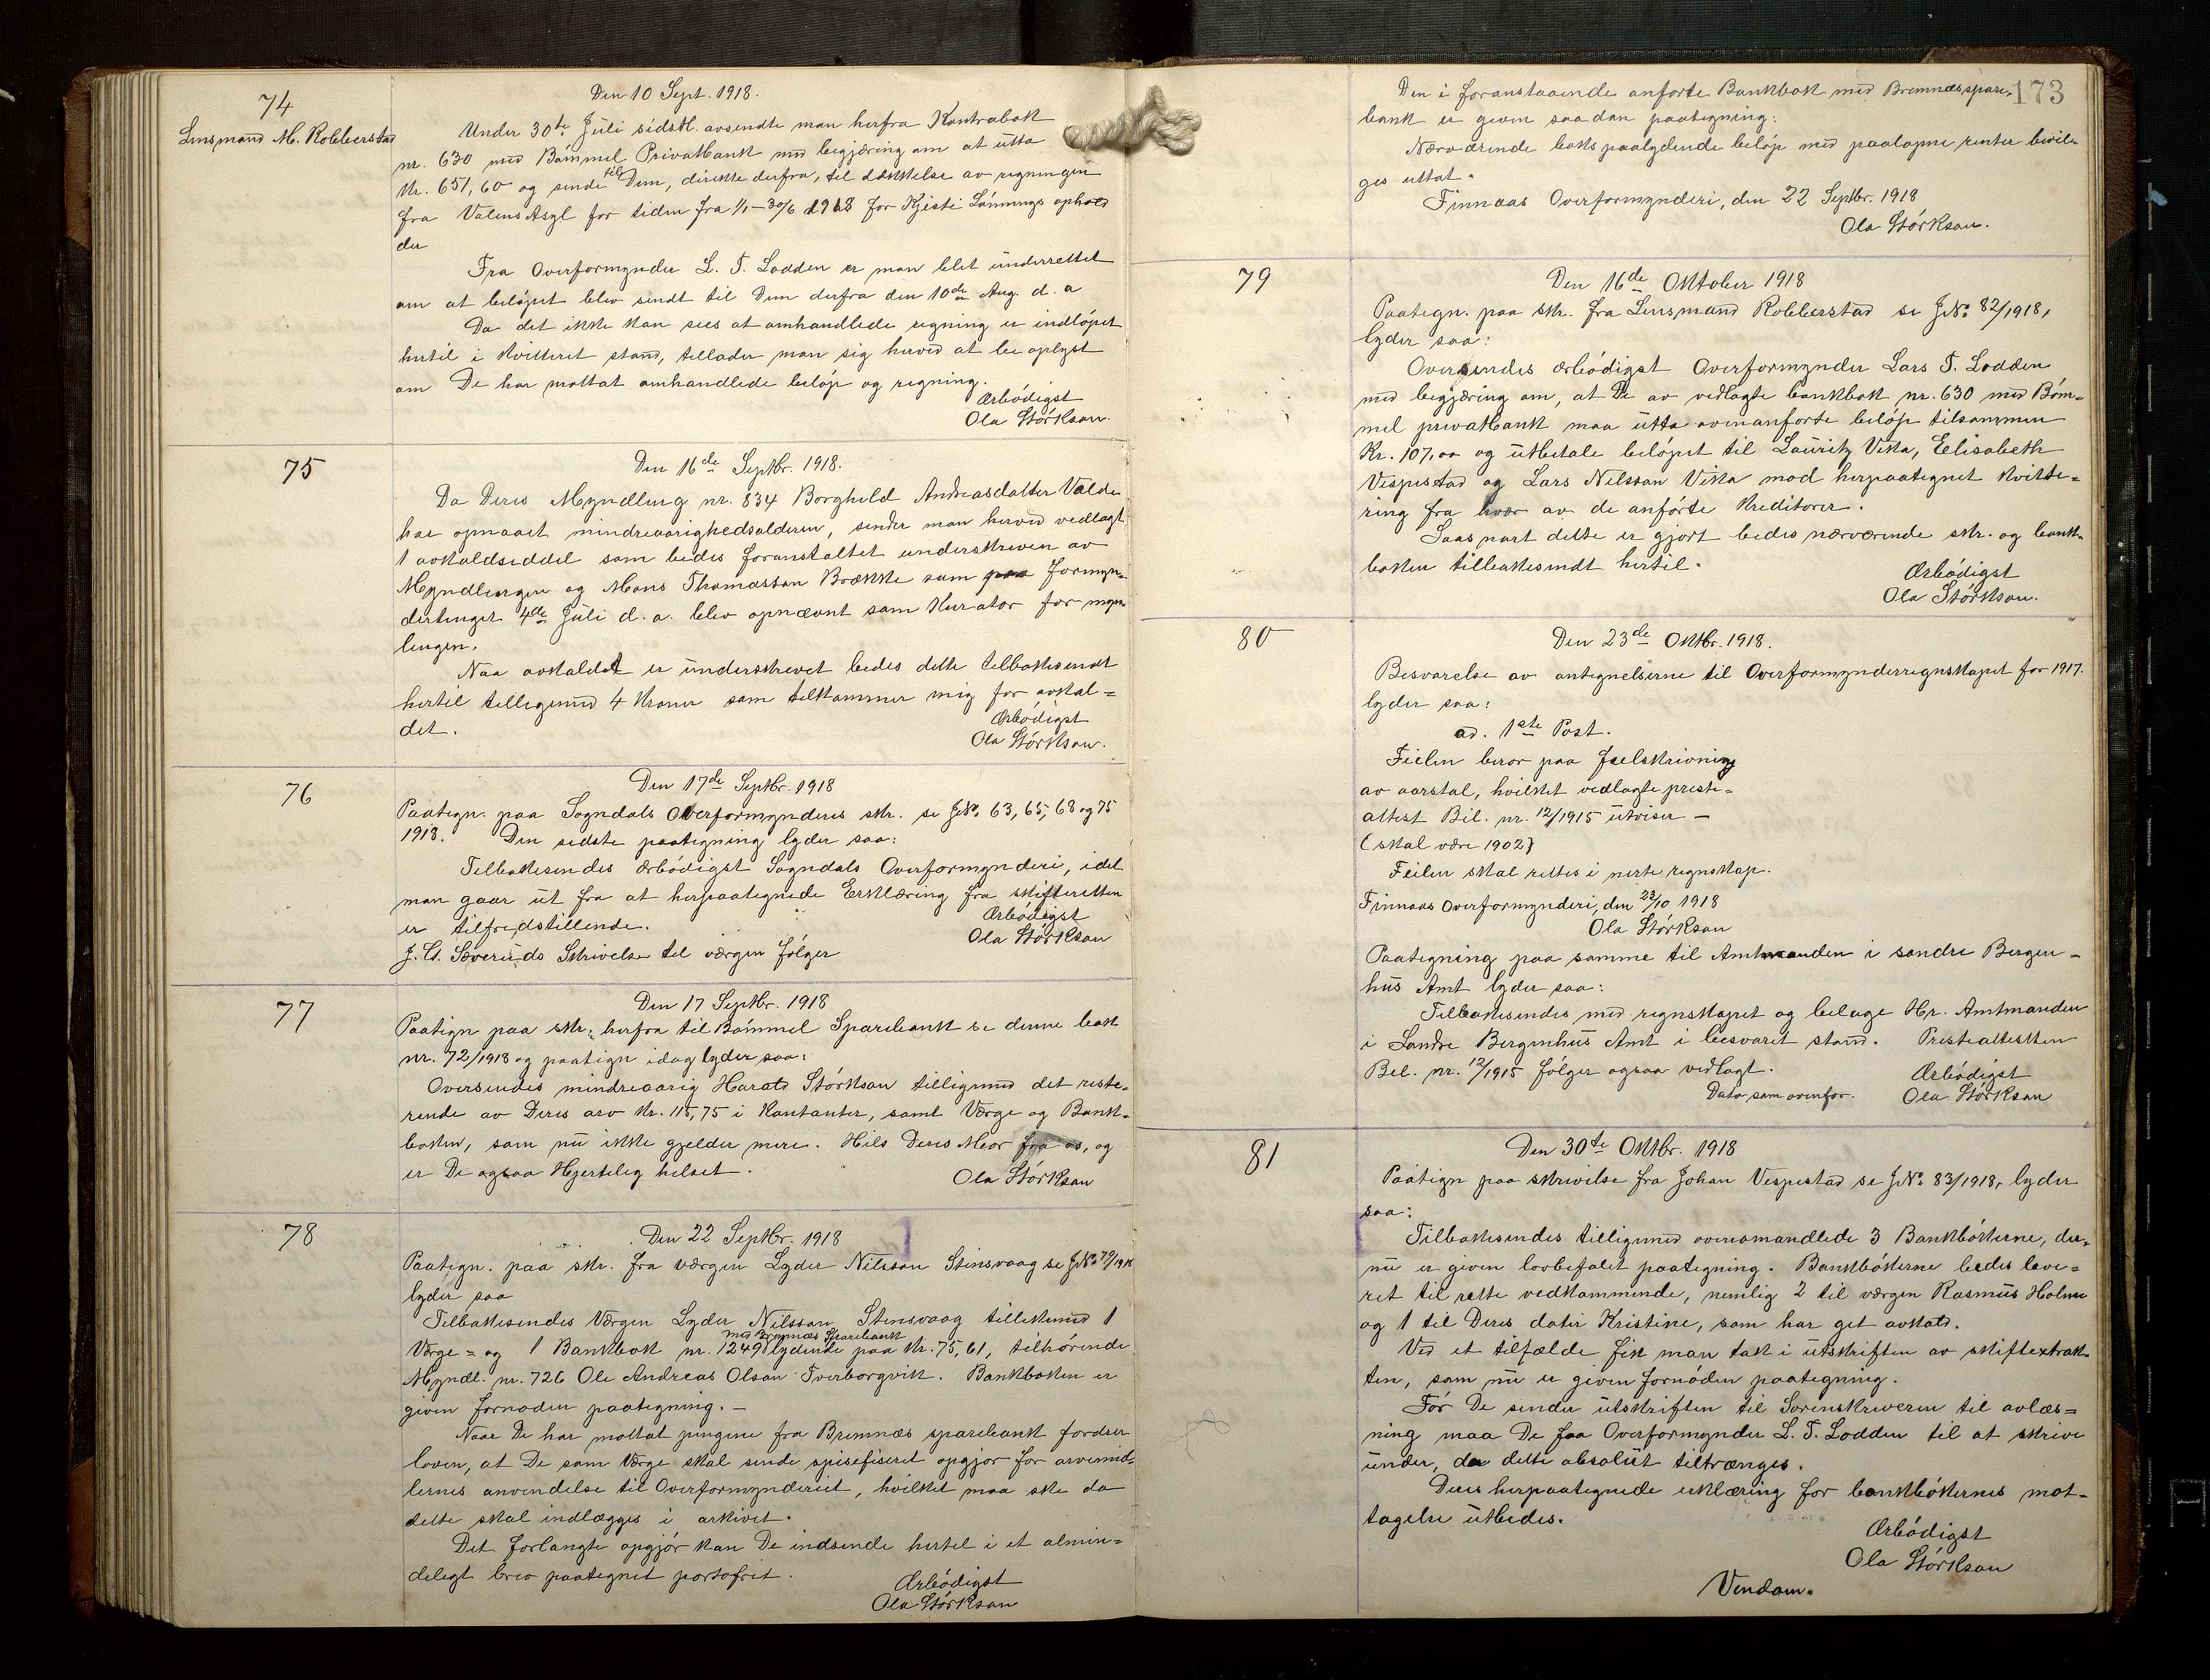 74
Lensmand M. Robberstad
Den 10 Sept. 1918.
Under 30te Juli sidstl. avsendte man herfra Kontrabok
nr. 630 med Bömmel Privatbank med begjæring om at utta
Kr. 651,60 og sende til Dem, direkte derfra, til dækkelse av regningen
fra Valens Asyl for tiden fra 1/1-30/6 1918 for Kjersti Lönnings ophold
der
Fra Overformynder L. T. Lodden er man blet underrettet
om at belöpet blev sendt til Dem derfra den 10de Aug. d. a
Da det ikke kan sees at omhandlede regning er indlöpet
hertil i kvitteret stand, tillader man sig herved at be oplyst
om De har mottat omhandlede belöp og regning.
Ærbödigst
Ola Störkson.
75
Den 16de Septbr. 1918.
Da Deres Myndling nr. 834 Borghild Andreasdatter Valde
har opnaaet mindreaarighedsalderen, sender man herved vedlagt
1 avkaldseddel som bedes foranstaltet underskreven av
Myndlingen og Mons Thomassan Brække som paa formyn-
dertinget 4de Juli d. a. blev opnævnt som Kurator for myn-
lingen.
Naa avkaldet er underskrevet bedes dette tilbakesendt
hertil tilligemed 4 Kroner som tilkommer mig for avkal=
det.
Ærbödigst
Ola Störkson.
76
Den 17de Septbr. 1918
Paategn. paa Sogndals Overformynderis skr. se JNo. 63, 65, 68 og 75
1918. Den sidste paategning lyder saa:
Tilbakesendes ærbödigst Sogndals Overformynderi, idet
man gaar ut fra at herpaategnede Erklæring fra skifteretten
er tilfredstillende.
Ærbödigst
Ola Störkson
J. G. Sæveruds Skrivelse til værgen fölger
77
Den 17 Septbr. 1918
Paategn paa skr. herfra til Bömmel Sparebank se denne bok
nr. 72/1918 og paategn idag lyder saa:
Oversendes mindreaarig Harald Störkson tilligemed det reste-
rende av Deres arv Kr. 115,75 i Kontanter, samt Værge og Bank-
boken, som nu ikke gjelder mere. Hils Deres Mor fra os, og
er De ogsaa Hjertelig helset.
Ola Störkson
78
Den 22 Septbr. 1918
Paategn. paa skr. fra værgen Lyder Nilsson Stensvaag se JNo 79/1918
lyder saa
Tilbakesendes Værgen Lyder Nilsson Stensvaag tillikemed 1
med Bremnæs Sparebank
Værge= og 1 Bankbok nr. 1249 lydende paa Kr. 75,61, tilhörende
Myndl. nr. 726 Ole Andreas Olson Tverborgvik. Bankboken er
given fornøden paategning. -
Naar De har mottat pengene fra Bremnæs sparebank fordrer
loven, at De som Værge skal sende spisefiseret opgjør for arvemid-
lernes anvendelse til Overformynderiet, hvilket maa ske da
dette skal indlægges i arkivet.
Det forlangte opgjör kan De indsende hertil i et almin=
deligt brev paategnet portofrit.
Ærbödigst
Ola Störkson
173
Den i foranstaaende anförte Bankbok med Bremnæsspare-
bank er given saadan paategning:
Nærværende boks paalydende belöp med paalöpne renter bevil-
ges uttat.
Finnaas Overformynderi, den 22 Septbr. 1918
Ola Störkson.
79
Den 16de Oktober 1918
Paategn. paa skr. fra Lensmand Robberstad se JNo. 82/1918,
lyder saa:
Oversendes ærbödigst Overformynder Lars T. Lodden
med begjæring om, at De av vedlagte bankbok nr. 630 med Böm=
mel privatbank maa utta ovenanförte belöp tilsammen
Kr. 107,00 og utbetale belöpet til Lauritz Vika, Elisabeth
Vespestad og Lars Nilsson Vika mod herpaategnet kvitte=
ring fra hver av de anförte Kreditorer.
Saasnart dette er gjort bedes nærværende skr. og bank-
boken tilbakesendt hertil.
Ærbödigst
Ola Störkson.
80
Den 23de Oktbr. 1918.
Besvarelse av antegnelserne til Overformynderregnskapet for 1917.
lyder saa:
ad. 1ste Post.
Feilen beror paa feilskrivning
av aarstal, hvilket vedlagte preste=
attest Bil. nr. 12/1915 utviser -
(skal være 1902)
Feilen skal rettes i neste regnskap.
Finnaas Overformynderi, den 23/10 1918
Ola Störkson
Paategning paa samme til Amtmanden i søndre Bergen=
hus Amt lyder saa:
Tilbakesendes med regnskapet og belage Hr. Amtmanden
i Søndre Bergenhus Amt i besvaret stand. Presteattesten
Bil. nr. 12/1915 fölger ogsaa vedlagt.
Dato som ovenfor.
Ærbödigst
Ola Störkson
81
Den 30te Oktbr. 1918
Paategn paa skrivelse fra Johan Vespestad se JNo. 83/1918, lyder
saa:
Tilbakesendes tilligemed ovenomandlede 3 Bankbökerne, der-
nu er given lovbefalet paategning. Bankbökerne bedes leve=
ret til rette vedkommende, nemlig 2 til værgen Rasmus Holme
og 1 til Deres dater Kristine, som har get avkald.
Ved et tilfælde fik man tak i utskriften av skiftextrak-
ten, som nu er given fornöden paategning.
För De sender utskriften til Sorenskriveren til avlæs=
ning maa De faa Overformynder L. T. Lodden til at skrive
under, da dette absolut tiltrænges.
Deres herpaategnede erklæring for bankbökernes mot-
tagelse utbedes.
Ærbödigst
Ola Störkson
Vendom.